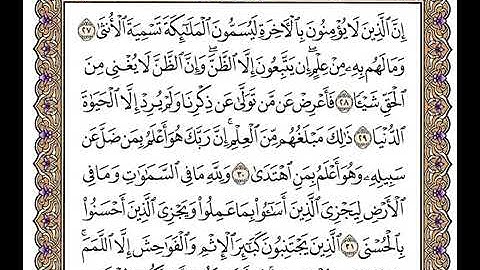 إِنَّ ٱلَّذِينَ لَا يُؤْمِنُونَ بِٱلْأَخِرَةِ لَيُسَمُّونَ ٱلْمَلَٰٓئِكَةَ تَسْمِيَةَ ٱلْأُنثَىٰ ٢٧
وَمَا لَهُم بِهِۦ مِنْ عِلْمٍ ۖ إِن يَتَّبِعُونَ إِلَّا ٱلظَّنَّ ۖ وَإِنَّ ٱلظَّنَّ لَا يُغْنِى مِنَ
ٱلْحَقِّ شَيْـًٔا ٢٨ فَأَعْرِضْ عَن مَّن تَوَلَّىٰ عَن ذِكْرِنَا وَلَمْ يُرِدْ إِلَّا ٱلْحَيَوٰةَ
ٱلدُّنْيَا ٢٩ ذَٰلِكَ مَبْلَغُهُم مِّنَ ٱلْعِلْمِ ۚ إِنَّ رَبَّكَ هُوَ أَعْلَمُ بِمَن ضَلَّ عَن
سَبِيلِهِۦ وَهُوَ أَعْلَمُ بِمَنِ ٱهْتَدَىٰ ٣٠ وَلِلَّهِ مَا فِى ٱلسَّمَٰوَٰتِ وَمَا فِى
ٱلْأَرْضِ لِيَجْزِىَ ٱلَّذِينَ أَسَٰٓـُٔوا۟ بِمَا عَمِلُوا۟ وَيَجْزِىَ ٱلَّذِينَ أَحْسَنُوا۟
بِٱلْحُسْنَى ٣١ ٱلَّذِينَ يَجْتَنِبُونَ كَبَٰٓئِرَ ٱلْإِثْمِ وَٱلْفَوَٰحِشَ إِلَّا ٱللَّمَمَ ۚ